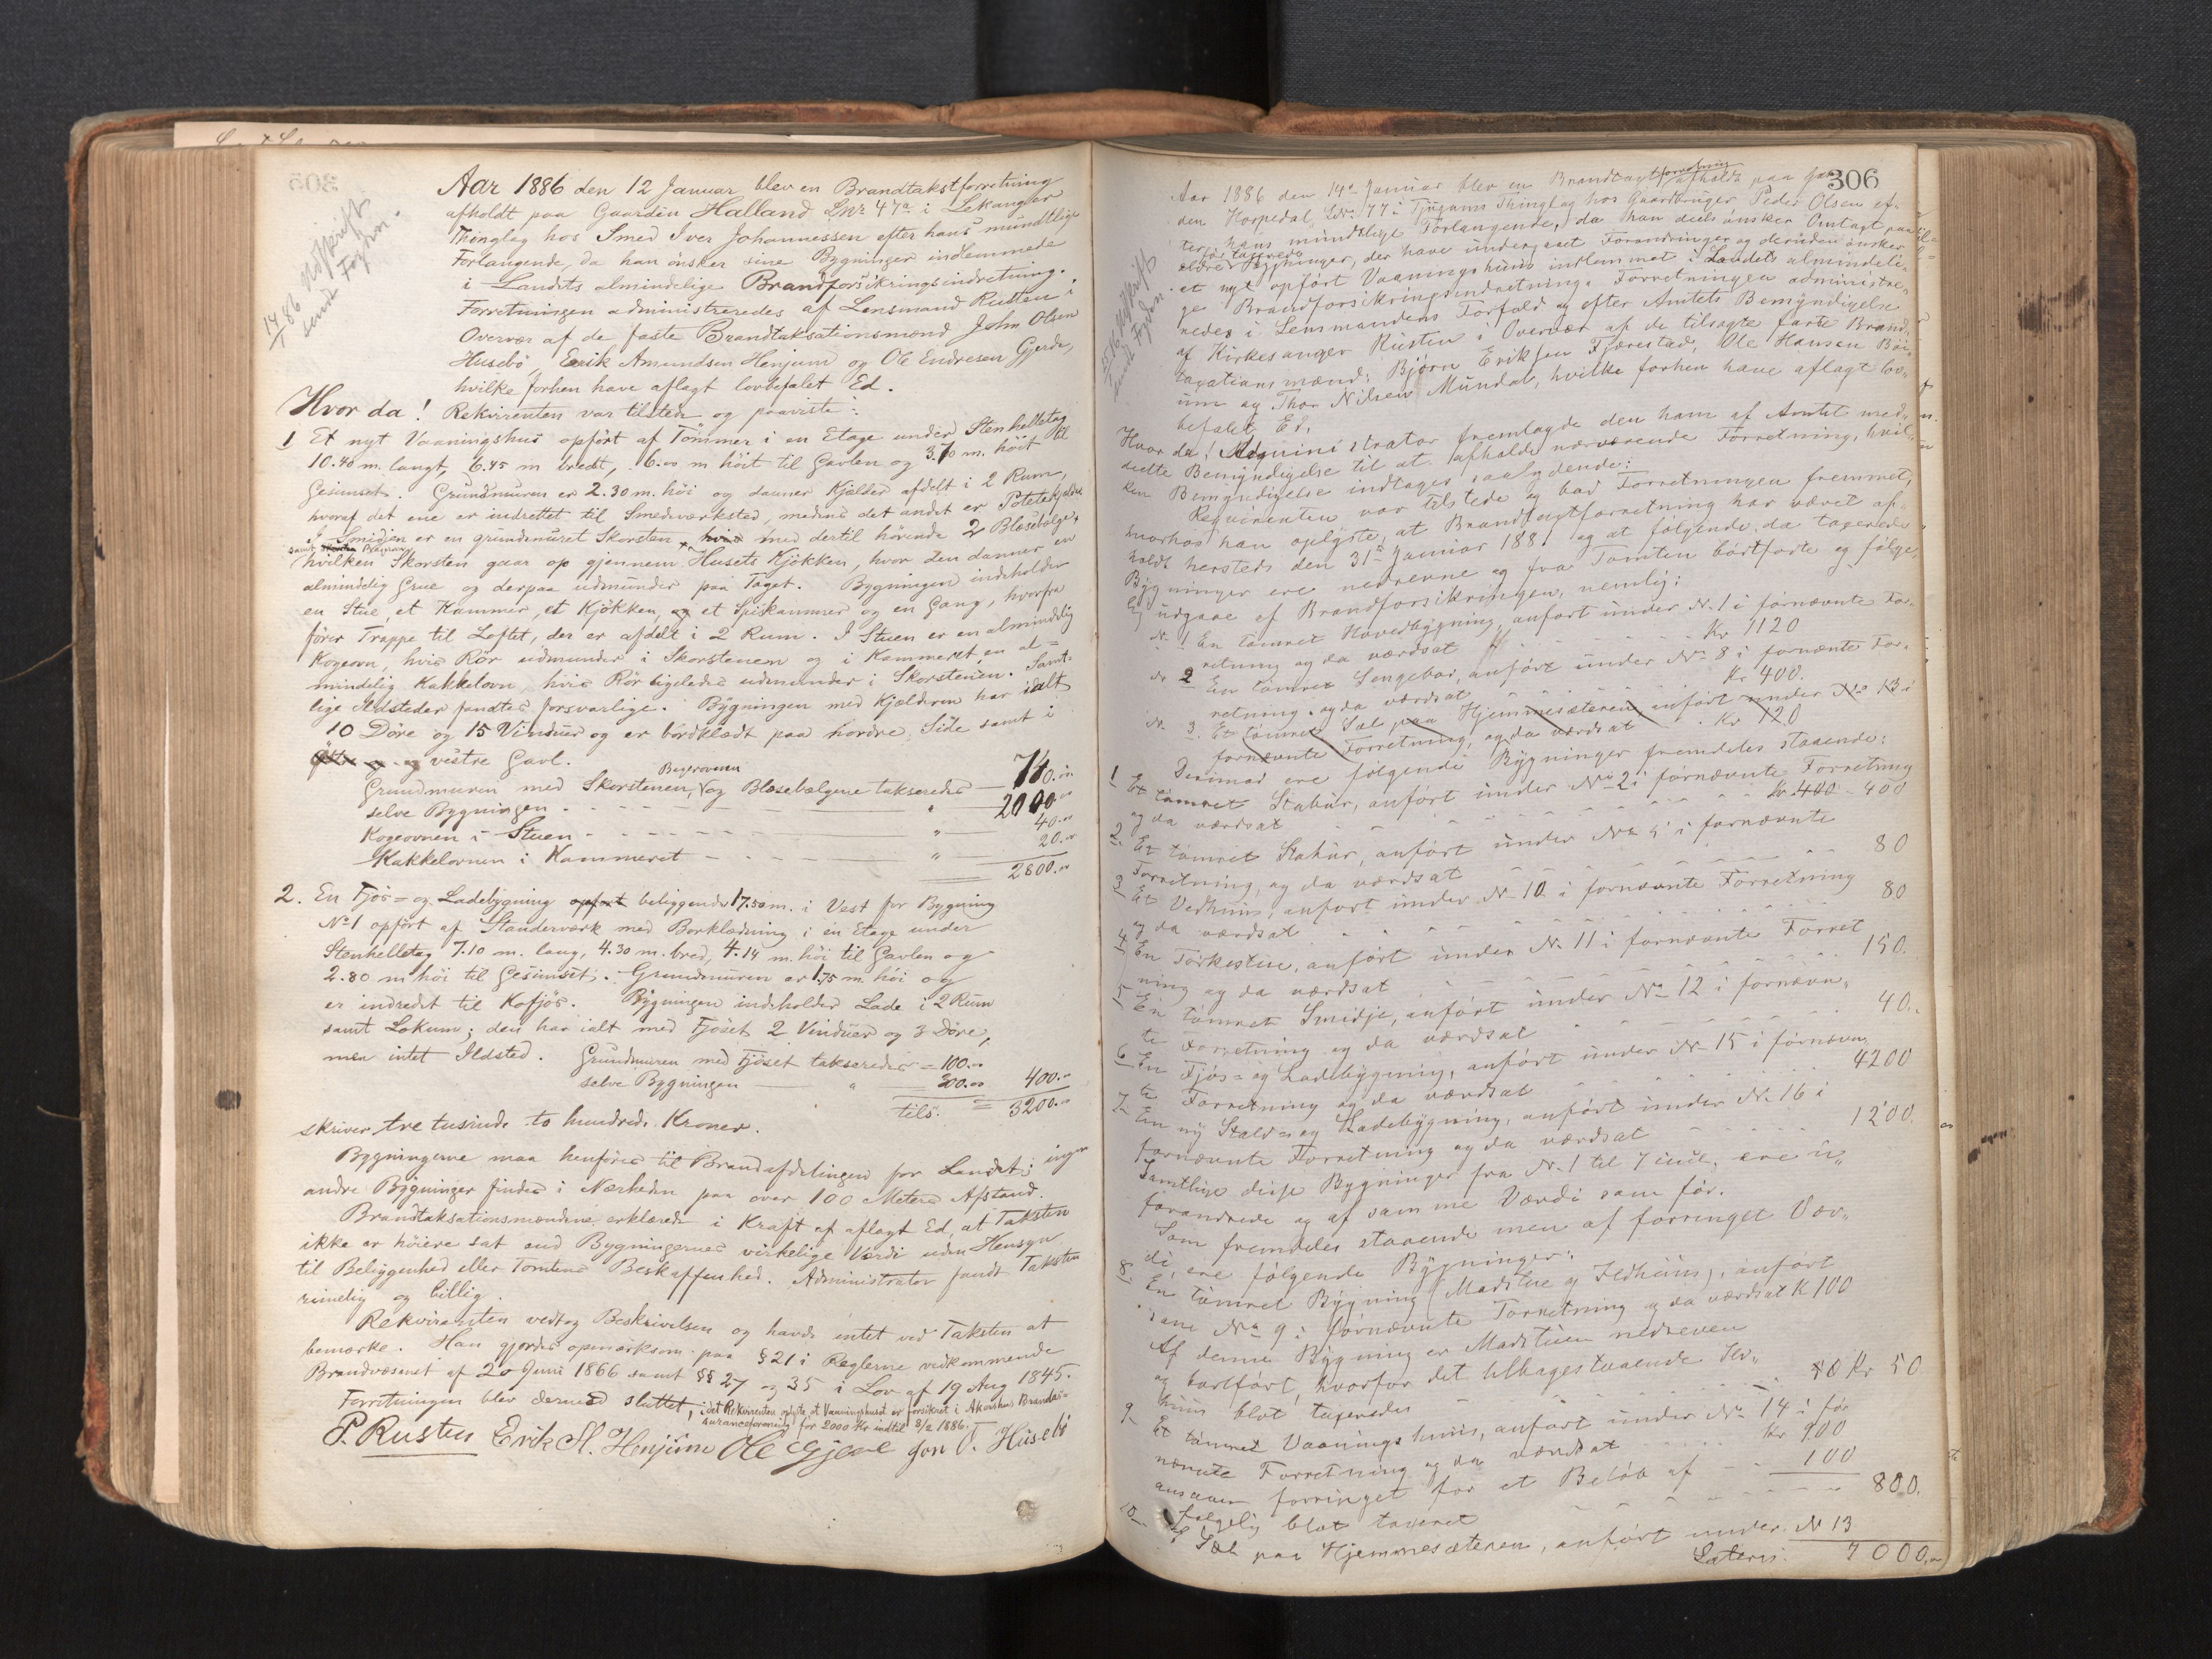 Aar 1886 den 12 Januar blev en Brandtakstforretning
afholdt paa Gaarden Halland Lnr 47a i Lekanger
Thinglag hos Smed Iver Johannessen efter hans mundtlige
Forlangende, da han ønsker sine Bygninger indlemmede
i Landets almindelige Brandforsikringsindretning.
Forretningen administreredes af Lensmand Rusten i
Overvær af de faste Brandtaksationsmænd John Olsen
Husebö, Erik Amundsen Henjum og Ole Endresen Gjerde,
hvilke forhen have aflagt lovbefalet Ed.
14/1 86 Udskrift
sendt Fogden.
Hvor da! Rekvirenten var tilstede og paaviste:
1 Et nyt Vaaningshus opfört af Tömmer i en Etage under Stenhelletag
10.40 m. langt, 6.45 m bredt, 6.00 m höit til Gavlen og 3.70 m. höit til
Gesimset. Grundmuren er 2.30 m. höi og danner Kjælder afdelt i 2 Rum,
hvoraf det ene er indrettet til Smedværksted, medens det andet er Potetekjælder
I Smidjen er en grundmuret Skorsten med dertil hörende 2 Blæsebælge,
hvilken Skorsten gaar op gjennem Husets Kjökken, hvor den danner en
almindelig Grue og derpaa udmunder paa Taget. Bygningen indeholder
en Stue, et Kammer, et Kjökken, og et Spiskammer og en Gang, hvorfra
förer Trappe til Loftet, der er afdelt i 2 Rum. I Stuen er en almindelig
Kogeovn, hvis Rör udmunder i Skorstenen og i Kammeret en al=
mindelig Kakkelovn, hvis Rör ligeledes udmunder i Skorstenen. Samt-
lige Ildsteder fandtes forsvarlige. Bygningen med Kjælderen har ialt
10 Döre og 15 Vinduer og er bordklædt paa nordre Side samt i
og vestre Gavl.
Bagerovnen
Grundmuren med Skorstenen, og Blæsebælgene takseredes — 740.00
selve Bygningen - - - - " — 2000.00
Kogeovnen i Stuen - - - - " — 40.00
Kakkelovnen i Kammeret - - - " — 20.00
2800.00
2. En Fjös= og Ladebygning opfört beliggende 17.50 m. i Vest for Bygning
No 1 opfört af Standerværk med Borklædning i en Etage under
Stenhelletag 7.10 m. lang, 4.30 m. bred, 4.14 m. höi til Gavlen og
2.80 m höi til Gesimset. Grundmuren er 1.75 m. höi og
er indredet til Kofjös. Bygningen indeholder Lade i 2 Rum
samt Lokum; den har ialt med Fjöset 2 Vinduer og 3 Döre,
men intet Ildsted. Grundmuren med Fjöset takseredes = 100.00
selve Bygningen — " — 300.00 400.00
tils. = 3200.00
skriver tre tusinde to hundrede Kroner.
Bygningerne maa henföres til Brandafdelingen for Landet; ingen
andre Bygninger findes i Nærheden paa over 100 Meters Afstand.
Brandtaksationsmændene erklærede i Kraft af aflagt Ed, at Taksten
ikke er höiere sat end Bygningernes virkelige Værdi uden Hensyn
til Beliggenhed eller Tomtens Beskaffenhed. Administrator fandt Taksten
rimelig og billig.
Rekvirenten vedtog Beskrivelsen og havde intet ved Taksten at
bemærke. Han gjordes opmærksom paa § 21 i Reglerne vedkommende
Brandvæsenet af 20 Juni 1866 samt §§ 27 og 35 i Lov af 19 Aug 1845.
Forretningen blev dermed sluttet, idet Rekvirenten oplyste, at Vaaningshuset er forsikret i Akershus Brandas=
suranceforening for 2000 Kr indtil 8/2 1886.
P. Rusten Erik A. Henjum Ole Gjerde Jon O. Husebö
306
Aar 1886 den 14de Januar blev en Brandtagtforretning afholdt paa Gaar
den Horpedal Lnr. 77 i Tjugums Thinglag hos Gaardbruger Peder Olsen ef-
ter hans mündtlige Forlangende, da han deels önsker Omtagt paa
ældre Bygninger, der have undergaaet Forandringer og desuden önsker
et nyt opfört Vaaningshuus indlemmet i Landets almindeli-
ge Brandforsikringsindretning. Forretningen administre-
redes i Lensmandens Forfald og efter Amtets Bemyndigelse
af Kirkesanger Rusten i Overvær af de tilsagte faste Brand-
taxationsmænd: Björn Eriksen Fjærestad, Ole Hansen Böi-
um og Thor Nilsen Mundal, hvilke forhen have aflagt lov-
befalet Ed.
Udskrift
sendt Fogden
Hvor da! Administrator fremlagde den ham af Amtet med-
deelte Bemyndigelse til at afholde nærværende Forretning, hvil-
ken Bemyndigelse indtages saalydende:
Reqvirenten var tilstede og bad Forretningen fremmet,
hvorhos han oplyste, at Brandtagtforretning har været af-
holdt hersteds den 31te Januar 1881 og at følgende da taxerede
Bygninger ere nedrevne og fra Tomten bortførte og følge-
lig udgaae af Brandforsikringen, nemlig:
N. 1 En tømret Hovedbygning, anført under N. 1 i fornævnte For-
retning og da værdsat - - - Kr 1120
N 2 En tømret Sengebod, anført under No 8 i fornævnte For-
retning og da værdsat - - - Kr 400.
N. 3 Et tømret Sæl paa Hjemmesæteren, anført under No 13 i
fornævnte Forretning, og da værdsat . Kr 120
Derimod ere følgende Bygninger fremdeles staaende:
1 Et tømret Stabur, anført under No 2 i fornævnte Forretning
og da værdsat - - - Kr 400 - 400
2. Et tømret Stabur, anført under No 5 i fornævnte
Forretning, og da værdsat - - - 80
3 Et Vedhuus, anført under N. 10 i fornævnte Forretning
og da værdsat - - - 80
4 En Törkestue, anført under N. 11 i fornævnte Forret
ning og da værdsat - - - 150.
5 En tømret Smidje, anført under No 12 i fornævn-
te Forretning og da værdsat - - - 40.
6 En Fjös= og Ladebygning, anført under N. 15 i fornævn
te Forretning og da værdsat - - - 4200
7 En ny Stald= og Ladebygning, anført under N. 16 i
fornævnte Forretning og da værdsat - - - 1200.
Samtlige disse Bygninger fra N. 1 til 7 incl. ere u-
forandrede og af samme Værdi som før.
Som fremdeles staaende men af forringet Vær-
di, ere følgende Bygninger:
8. En tømret Bygning (Madstue og Ildhuus), anført
No 9 i fornævnte Forretning og da værdsat K 100
Af denne Bygning er Madstuen nedreven
og bortført, hvorfor det tilbagestaaende Ild-
huus blot taxeredes - - - Kr 50
9 Et tømret Vaaningshuus, anført under No 14 i for
nævnte Forretning og da værdsat - - - Kr 900
ansaaes forringet for et Beløb af - - 100
følgelig blot taxeret - - - 800.
10. Et Sæl paa Hjemmesæteren, anført under N 13
Lateris. 7000.